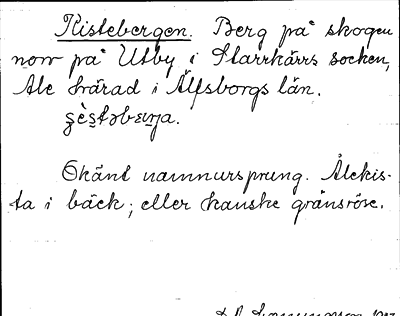 Kistebergen. Berg på skogen
norr på Utby i Starrkärrs socken,
Ale härad i Älfsborgs län.
Okänt namnursprung. Ålekis-
ta i bäck; eller kanske gränsröse.